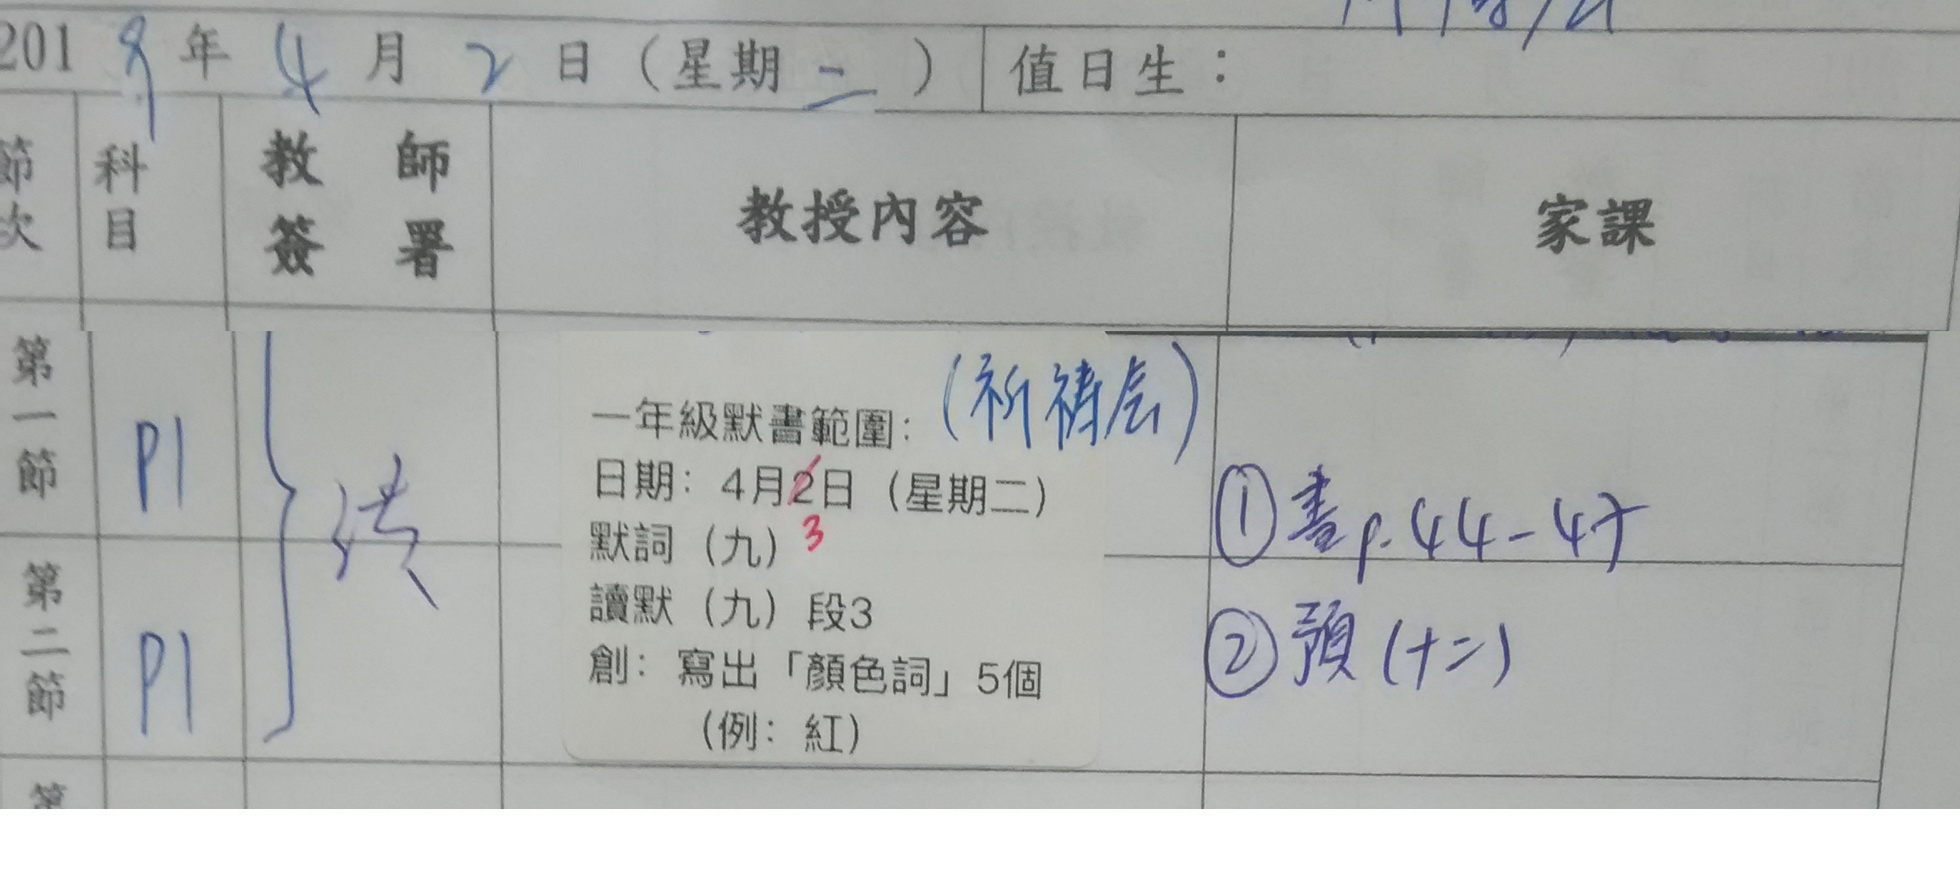 2019年4月2日（星期二） 值日生：
節次 科目 教師簽署 教授內容 家課
第一節 P1
(祈禱会)
一年級默書範圍：
日期：4月2日（星期二）
3
默詞（九）
讀默（九）段3
創：寫出「顏色詞」5個
（例：紅）
①書p.44-47
第二節 P1
②預(十二)
第